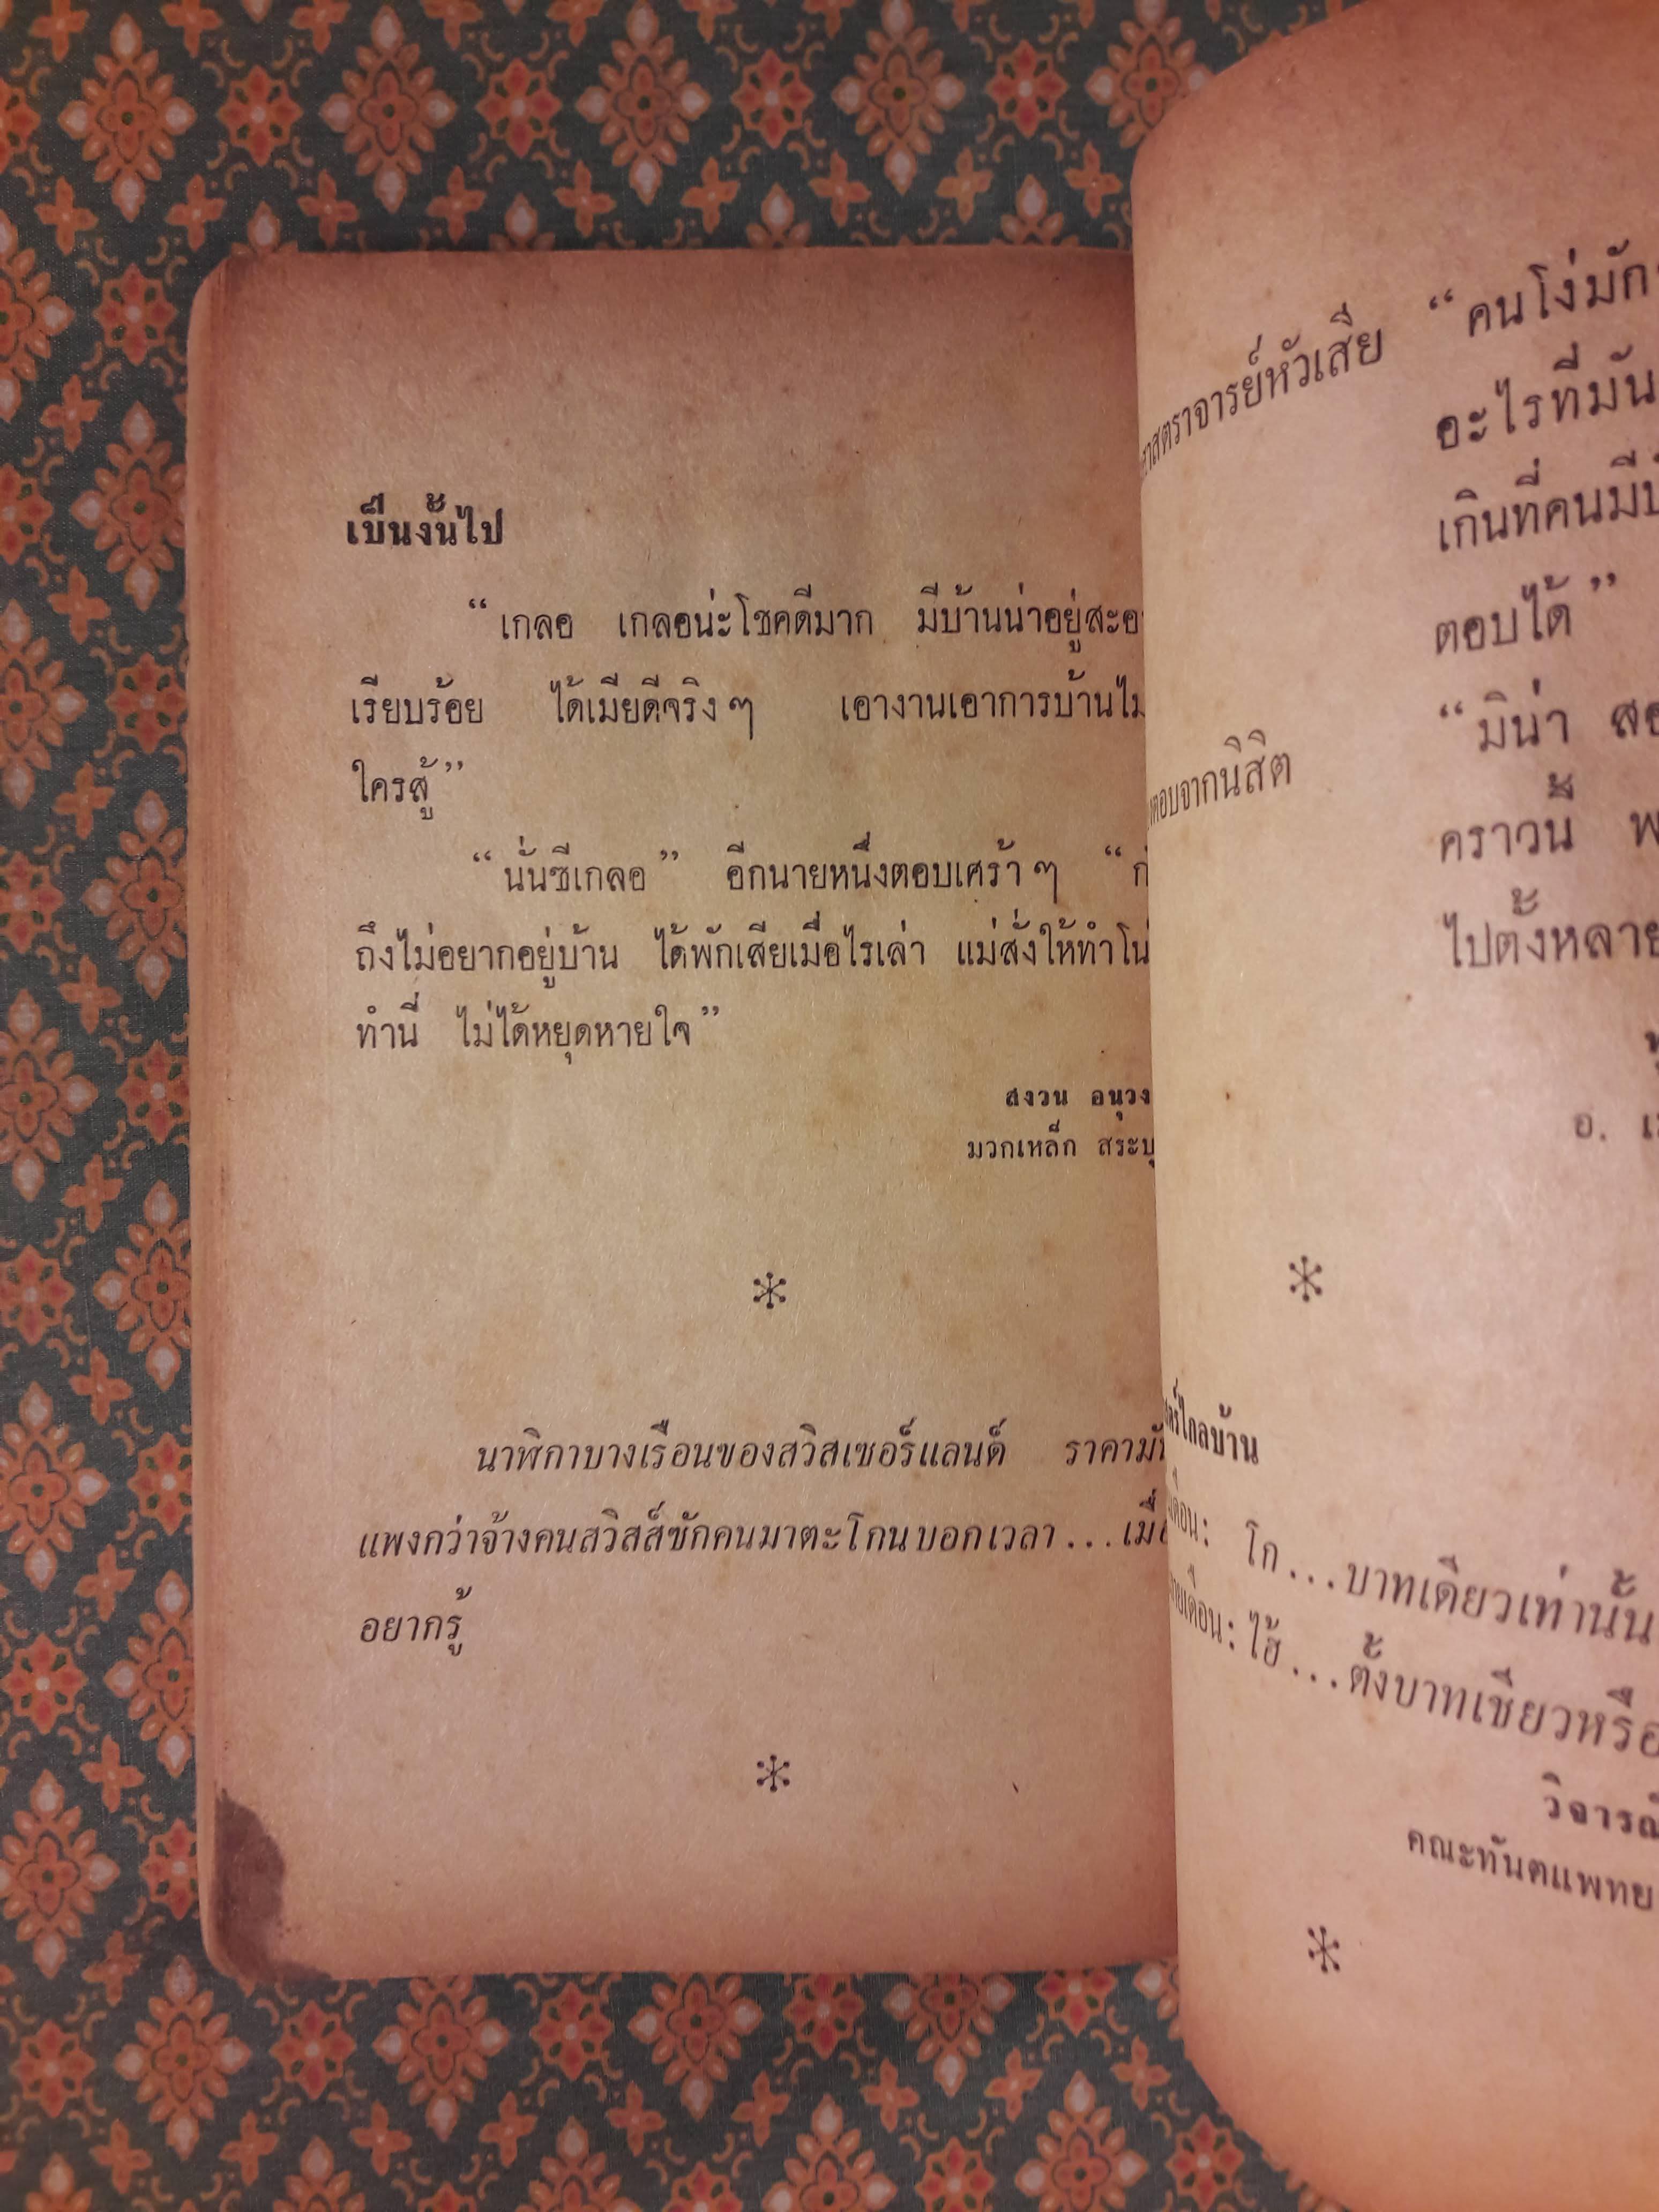 เป็นงั้นไป
“เกลอ เกลอน่ะโชคดีมาก มีบ้านน่าอยู่
เรียบร้อย ได้เมียดีจริง ๆ เอางานเอาการบ้าน
ใครสู้”
“นั่นซีเกลอ” อีกนายหนึ่งตอบเศร้า ๆ
ถึงไม่อยากอยู่บ้าน ได้พักเสียเมื่อไรเล่า แม่สั่งให้ทำ
ทำนี่ ไม่ได้หยุดหายใจ”
สงวน
มวกเหล็ก
นาฬิกาบางเรือนของสวิสเซอร์แลนด์ ราคา
แพงกว่าจ้างคนสวิสส์ซักคนมาตะโกนบอกเวลา...
อยากรู้
หัวเสีย “คนโง่มัก
อะไรที่มัน
เกินที่คนมี
ตอบได้”
จากนิสิต “มิน่า
คราวนี้
ไปตั้งหลาย
อ.
ไกลบ้าน
โก...บาทเดียวเท่านั้น
ไฮ้...ตั้งบาทเชียวหรือ
คณะทันตแพทย